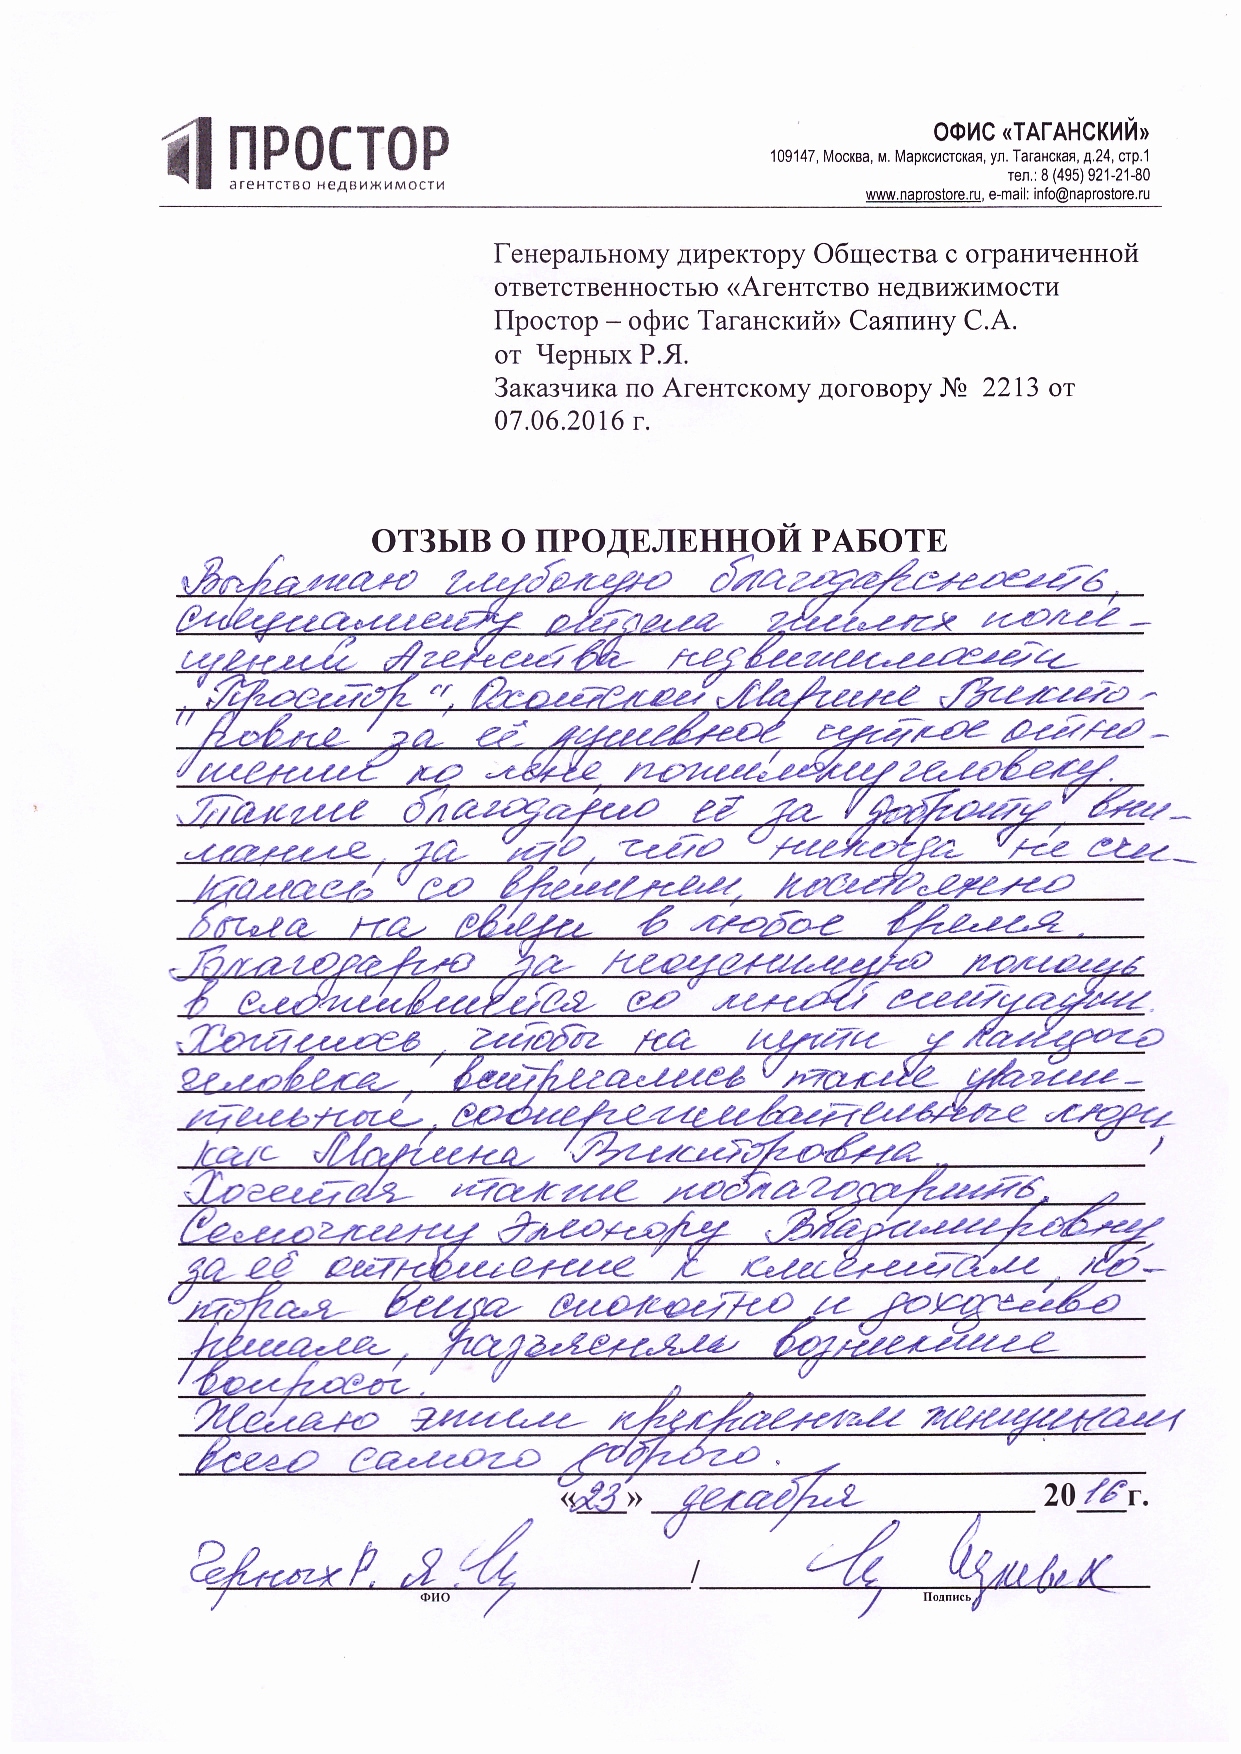 ПРОСТОР
агентство недвижимости
ОФИС «ТАГАНСКИЙ»
109147, Москва, м. Марксистская, ул. Таганская, д.24, стр.1
тел.: 8 (495) 921-21-80
www.naprostore.ru, e-mail: info@naprostore.ru
Генеральному директору Общества с ограниченной
ответственностью «Агентство недвижимости
Простор – офис Таганский» Саяпину С.А.
от Черных Р.Я.
Заказчика по Агентскому договору № 2213 от
07.06.2016 г.
ОТЗЫВ О ПРОДЕЛЕННОЙ РАБОТЕ
Выражаю глубокую благодарсность,
специалисту отдела жилых поме-
щений Агенства недвижимости
„Простор", Охотской Марине Викто-
ровне за её душевное, чуткое отно-
шение ко мне, пожилому человеку.
Также благодарю её за доброту, вни-
мание, за то, что никогда не счи-
талась со временем, постоянно
была на связи в любое время.
Благодарю за неоценимую помощь
в сложившейся со мной ситуации.
Хотелось, чтобы на пути у каждого
человека, встречались такие уважи-
тельные, сопереживательные люди,
как Марина Викторовна.
Хочется также поблагодарить,
Семочкину Элеонору Владимировну
за её отношение к клиентам, ко-
торая всегда спокойно и доходчиво
решала, разъясняла возникшие
вопросы.
Желаю этим прекрасным женщинам
всего самого доброго.
«23» декабря 2016 г.
Черных Р. Я. /
ФИО Подпись